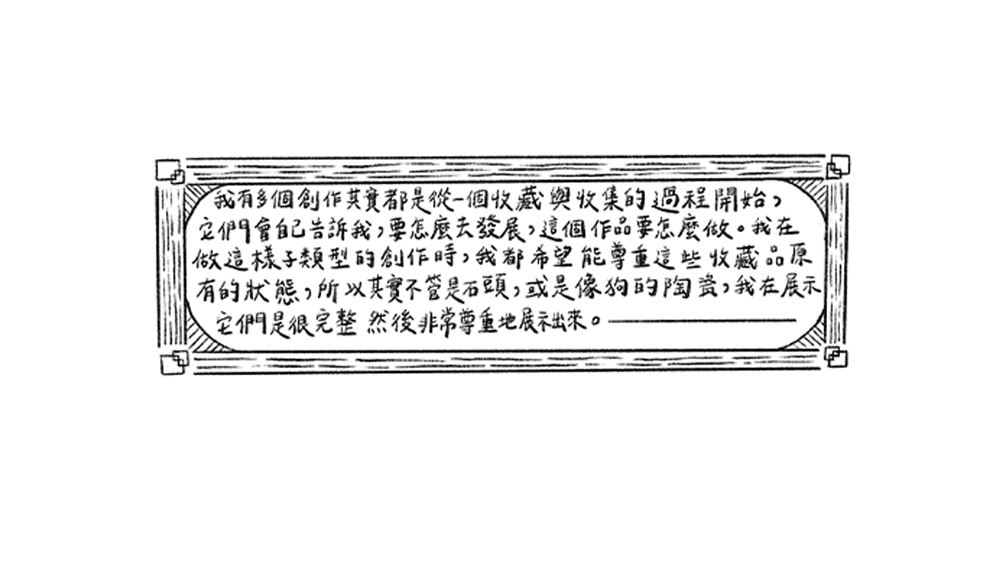 我有多個創作其實都是從一個收藏與收集的過程開始，
它們會自己告訴我，要怎麼去發展，這個作品要怎麼做。我在
做這樣子類型的創作時，我都希望能尊重這些收藏品原
有的狀態，所以其實不管是石頭，或是像狗的陶瓷，我在展示
它們是很完整然後非常尊重地展示出來。